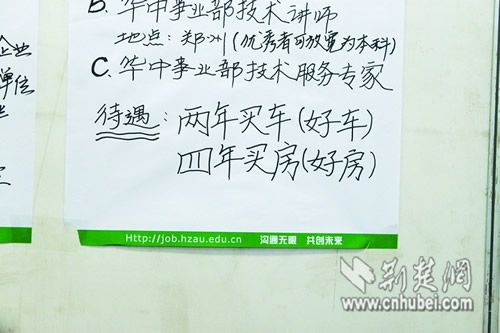 B. 华中事业部技术讲师
地点：郑州(优秀者可放宽为本科)
C. 华中事业部技术服务专家
待遇：两年买车(好车)
四年买房(好房)
企业
单位
Http://job.hzau.edu.cn 沟通无限 共创未来
荆楚网
www.cnhubei.com